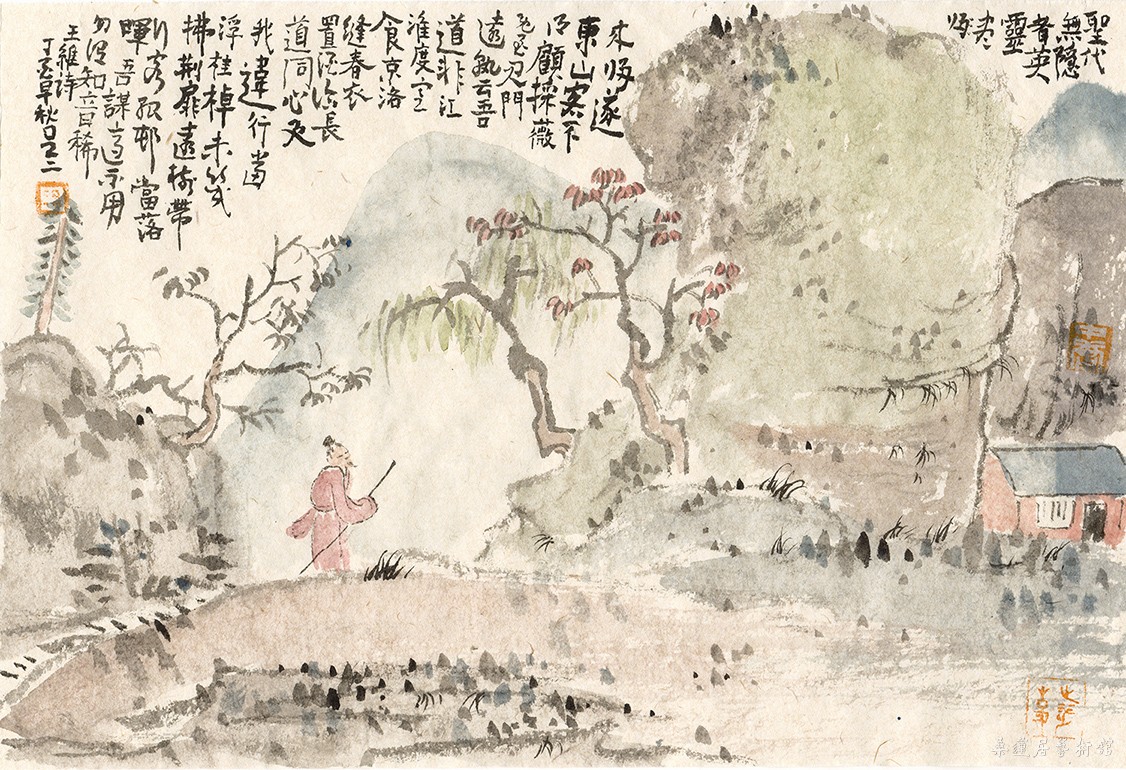 聖代
無隱
者英
靈
盡
歸
来歸遂
東山客不
得顧採薇
既至君門
遠孰云吾
道非江
淮度寒
食京洛
縫春衣
置酒臨長
道同心與
我違行當
浮桂棹未幾
拂荆扉遠樹帶
行客孤邨當落
暉吾謀適不用
勿謂知音稀
王維詩
丁亥早秋
桑蓮居藝術館